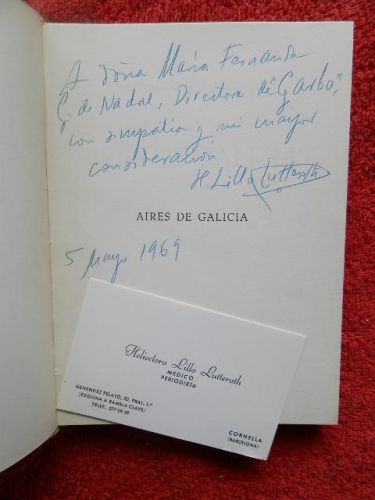 A doña María Fernanda
G. de Nadal, Directora de "Garbo",
con simpatía y mi mayor
consideración
H. Lillo Lutteroth
AIRES DE GALICIA
5 Mayo 1969
Heliodoro Lillo Lutteroth
MEDICO
PERIODISTA
MENENDEZ PELAYO, 52, PRAL. 1.ª
(ESQUINA A RAMBLA CLAVE)
TELEF. 377 01 29
CORNELLA
(BARCELONA)